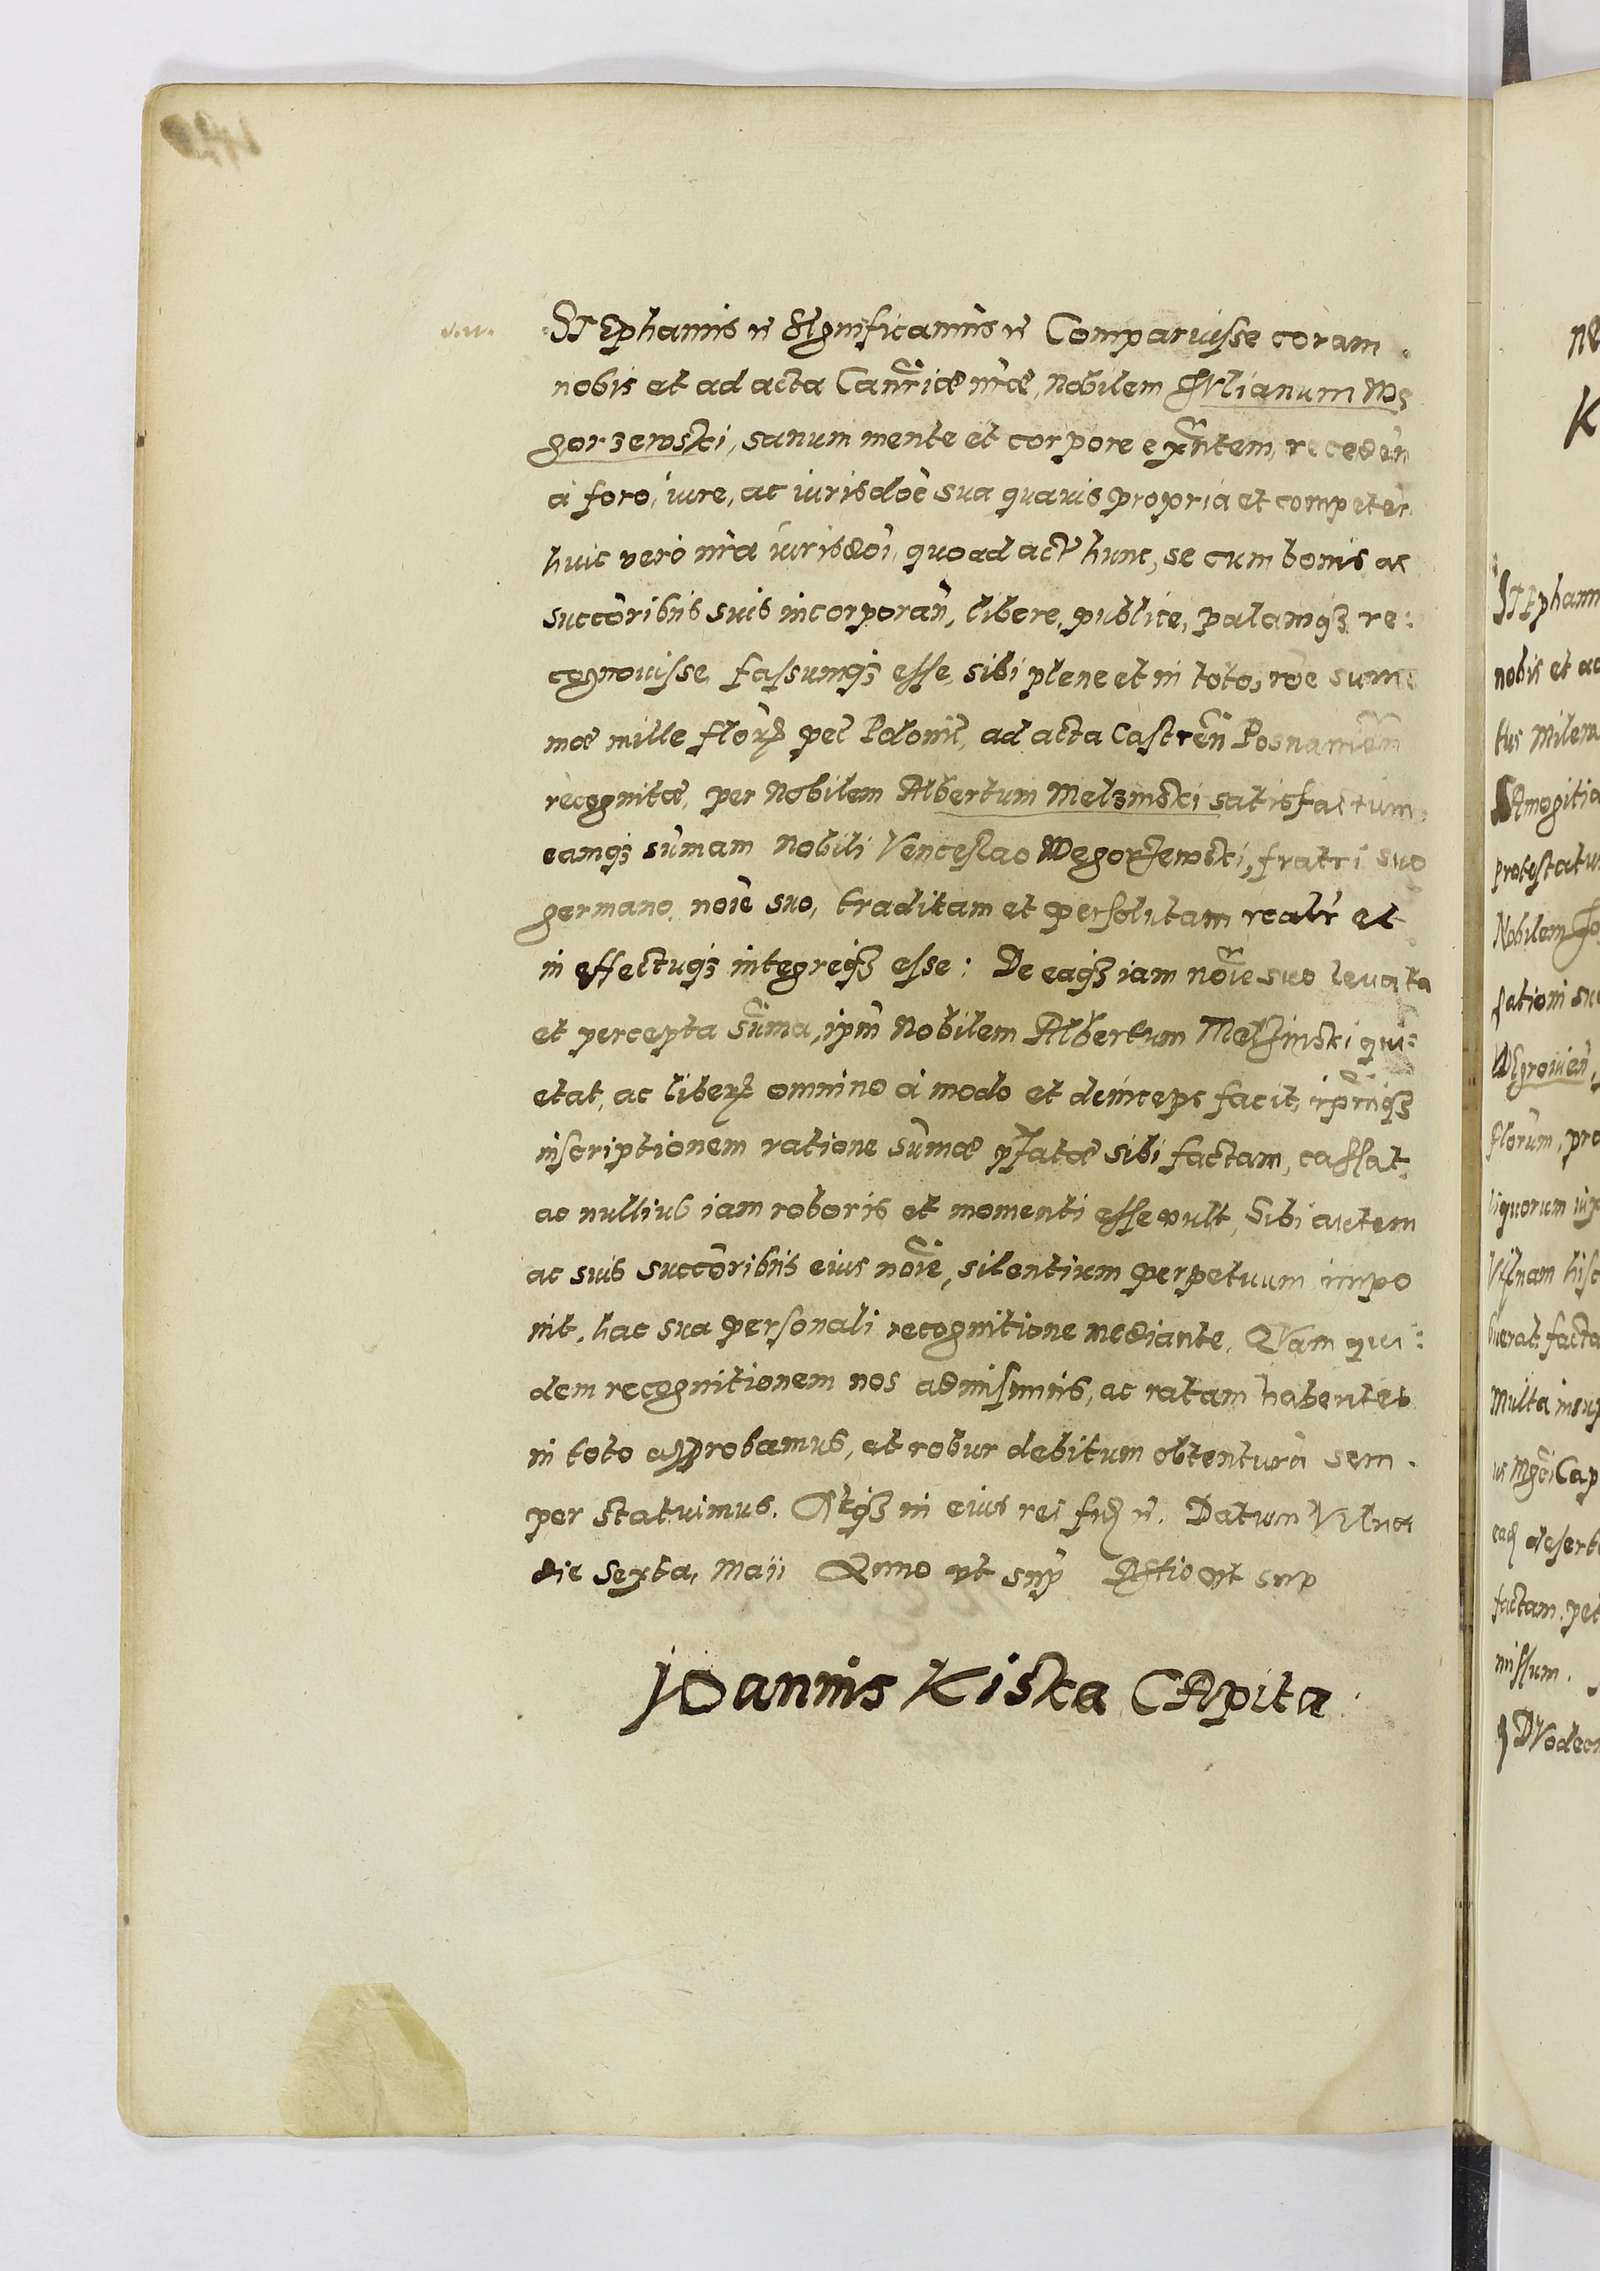 STEphanus etc Significamus etc Comparuisse coram
nobis et ad acta Canrīæ nrǣ, Nobilem IVlianum We
gorzewski, sanum mente et corpore exn̄tem, receden̄
à foro, iure, ac iurisdōe sua quauis propria et competen̄
huic verò nrǣ iurisdōi, quoad actū hunc, se cum bonis ac
succōribus suis incorporan̄, libere, publice, palamqȝ re:
cognouisse, fassumqȝ esse, sibi plene et in toto, rōe sum
mæ mille florꝝ pec Polonic̄, ad acta Castren̄ Posnanien̄
recognitæ, per Nobilem Albertum Melzinski satisfactum
eamqȝ sūmam Nobili Venceslao Wegorzewski, fratri suo
germano, noīe suo, traditam et persolutam realr̄ et
in effectuqȝ integreqȝ esse: De eaqȝ iam noīe suo leuata
et percepta sūma, ipm̄ Nobilem Albertum Melzinski qui:
etat, ac liberꝝ omnino à modo et deinceps facit, ipm̄qȝ
inscriptionem ratione sūmæ p̄fatæ sibi factam, cassat
ac nullius iam roboris et momenti esse vult, Sibi autem
ac suis succōribus eius noīe, silentium perpetuum impo
nit, hac sua personali recognitione mediante, QVam qui:
dem recognitionem nos admisimus, ac ratam habentes
in toto approbamus, et robur debitum obtenturā sem
per statuimus. Atqȝ in eius rei fid etc. Datum Vilnæ
die sexta, Maii Anno vt sup̄ Rl̄tio vt sup
IOannis Kiska CApita:
ne
K
STEphann
nobis et ac
tus Milem
SAmogitia
protestatu
Nobilem Jo
Florum, pro
liquorum iux
Vilnam hisc
buerat, facta
Multa insup
us Mgci Cap
factam, pet
missum.